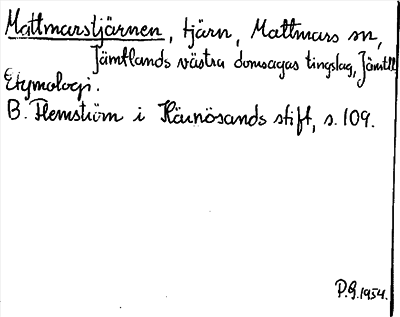 Mattmarstjärnen, tjärn, Mattmars sn,
Jämtlands västra domsagas tingslag, Jämtl.
Etymologi.
B. Flemström i Härnösands stift, s. 109.
P.G. 1954.